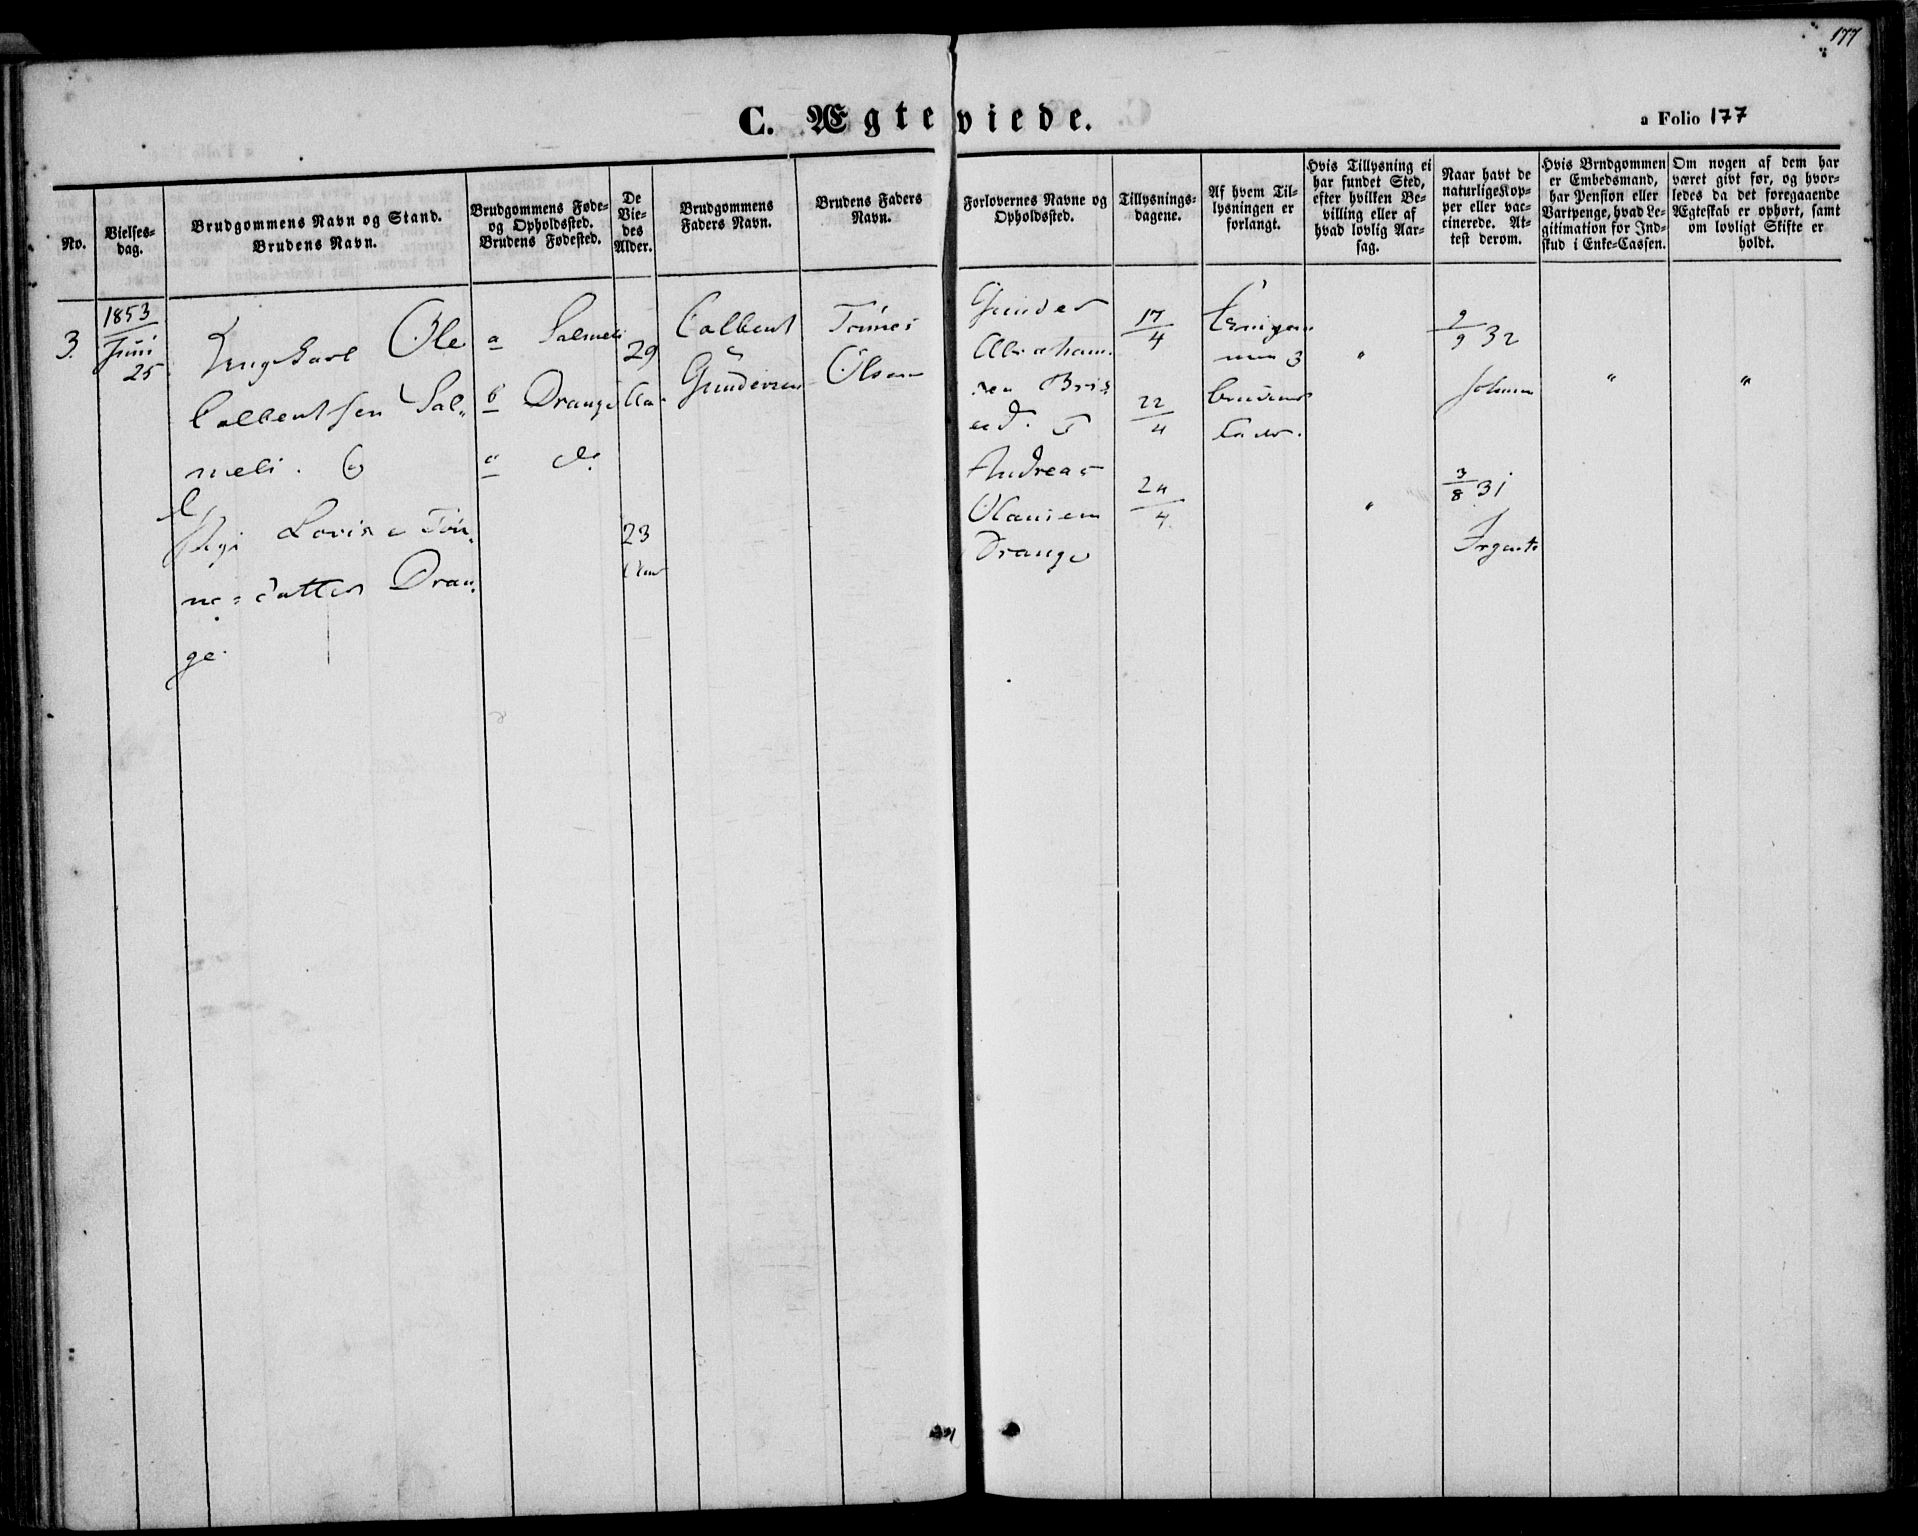 177
C. Ægteviede.
a Folio 177
No.
Vielses-
dag.
Brudgommens Navn og Stand.
Brudens Navn.
Brudgommens Føde-
og Opholdssted.
Brudens Fødested.
De
Vie-
des
Alder.
Brudgommens
Faders Navn.
Brudens Faders
Navn.
Forlovernes Navne og
Opholdssted.
Tillysnings-
dagene.
Af hvem Til-
lysningen er
forlangt.
Hvis Tillysning ei
har fundet Sted,
efter hvilken Be-
villing eller af
hvad lovlig Aar-
sag.
Naar havt de
naturlige Kop-
per eller vac-
cinerede. At-
test derom.
Hvis Brudgommen
er Embedsmand,
har Pension eller
Vartpenge, hvad Le-
gitimation for Ind-
skud i Enke-Cassen.
Om nogen af dem har
været givt før, og hvor-
ledes da det foregaaende
Ægteskab er ophørt, samt
om lovligt Skifte er
holdt.
3.
1853
Juni
25
Ungkarl Ole
Salmeli
b Drange
a do
29
Colbent
Gundersen
Tønnes
Olsen
meli. Og
Pige Lovise Tøn-
nesdatter Dran-
ge.
23
Gunder
Abraham-
sen
Andreas
Drange
17/4
22/4
24/4
brudens
"
"
9/9 32
3/8 31
"
"